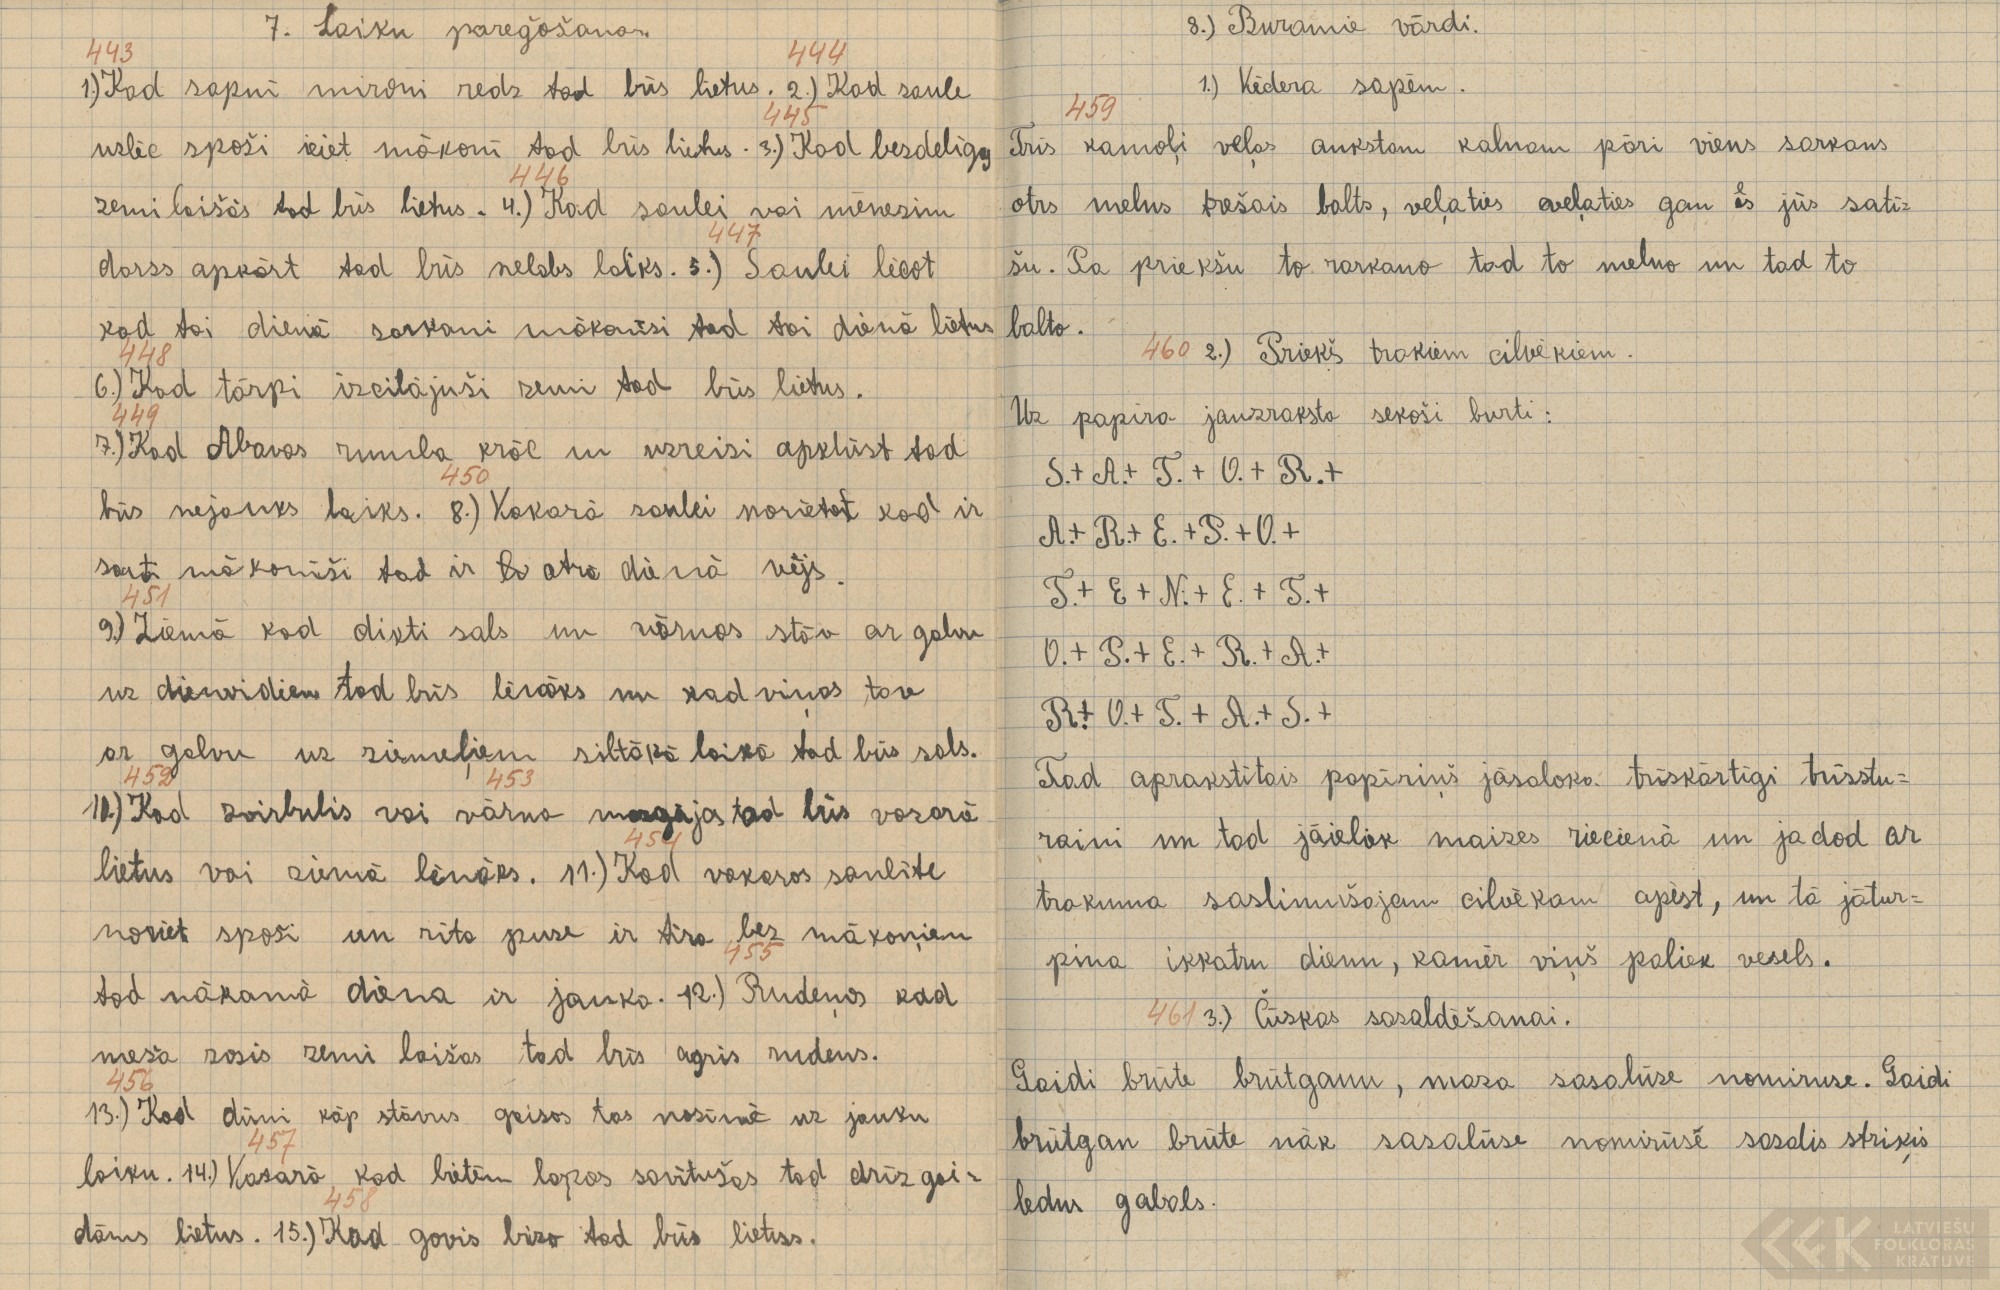 7. Laiku paregošana.
443 444
1.) Kad sapnī mironi redz tad būs lietus. 2.) Kad saule
445
uzlēc spoši ieiet mākonī tad būs lietus. 3.) Kad bezdelīgas
446
zemi laišās tad būs lietus. 4.) Kad saulei vai mēnesim
447
dorzs apkārt tad būs nelabs laiks. 5.) Saulei lēcot
kad tai dienā sarkani mākonīši tad tai dienā lietus
448
6.) Kad tārpi izcilājuši zemi tad būs lietus.
449
7.) Kad Abavas rumba krāc un uzreizi apklūst tad
450
būs nejauks laiks. 8.) Vakarā saulei norietot kad ir
sarti mākonīši tad ir otra dienā vējs.
451
9.) Ziemā kad dikti sals un vārnas stāv ar galvu
uz dienvidiem tad būs lēnāks un kad viņas
ar galvu uz ziemeļiem siltākā laikā tad būs sals.
452 453
10.) Kad zvirbulis vai vārna mazgājas tad būs vasarā
454
lietus vai ziemā lēnāks. 11.) Kad vakaros saulīte
noriet spoši un rīta puse ir tīra bez mākoņiem
455
tad nākamā diena ir jauka. 12.) Rudeņos kad
meša zosis zemi laišas tad būs agris rudens.
456
13.) Kad dūmi kāp stāvus gaisos tas nozīmē uz jauku
457
laiku. 14.) Vasarā kad bietēm lapas savītušas tad drīz gai-
458
dāms lietus. 15.) Kad govis bizo tad būs lietus.
8.) Buramie vārdi.
1.) Vēdera sāpēm.
459
Trīs kamoļi veļas aukstam kalnam pāri viens sarkans
otrs melns trešais balts, veļaties veļaties gan es jūs satī-
šu. Pa priekšu to sarkano tad to melno un tad to
balto.
460 2.) Priekš trakiem cilvēkiem.
Uz papīra jauzraksta sekoši burti:
S.+ A.+ T.+ O.+ R.+
A.+ R.+ E.+ P.+ O.+
T.+ E + N.+ E.+ T.+
O.+ P.+ E.+ R.+ A.+
R.+ O.+ T.+ A.+ S.+
Tad aprakstītais papīriņš jāsaloka trīskārtīgi trīsstu-
raini un tad jāieliek maizes riecienā un jadod ar
trakuma saslimušajam cilvēkam apēst, un tā jātur-
pina ikkatru dienu, kamēr viņš paliek vesels.
461 3.) Čūskas sasaldēšanai.
Gaidi brūte brūtganu, maza sasalūse nomiruse. Gaidi
brūtgan brūte nāk sasalūse nomirūsē sasalis strīķis
ledus gabals.
LATVIEŠU
FOLKLORAS
KRĀTUVE